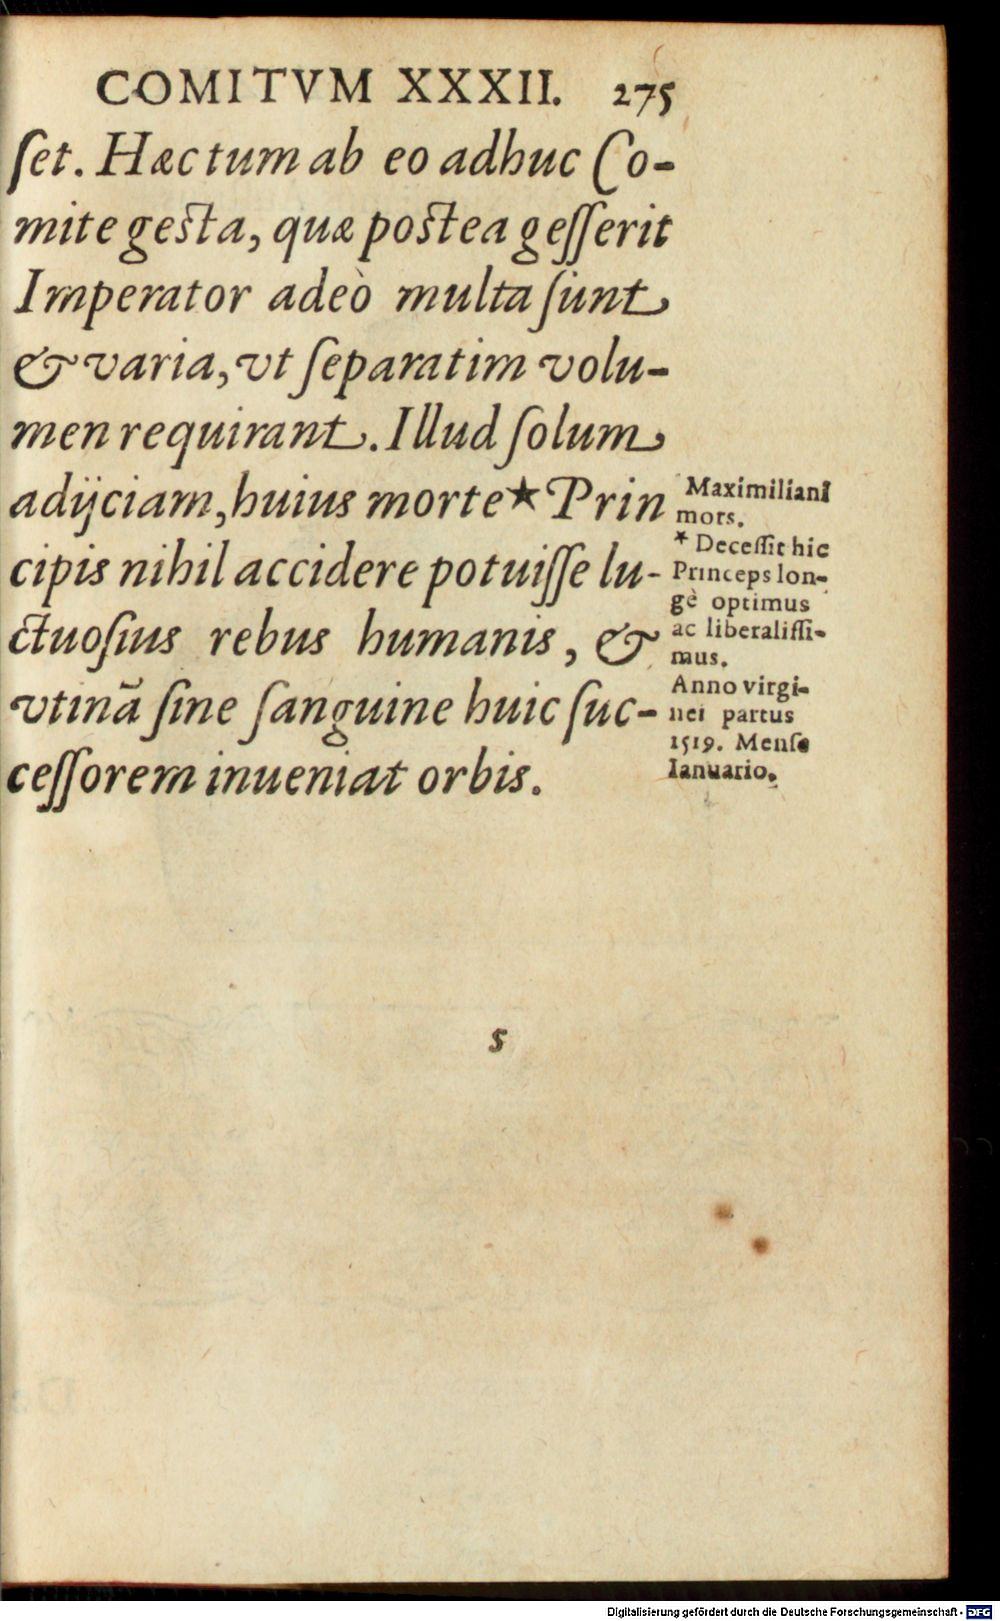 COMITVM XXXII. 275
ſet. Hæc tum ab eo adhuc Co-
mite geſta, quæ poſtea geſſerit
Imperator adeò multa ſunt
& varia, vt ſeparatim volu-
men requirant. Illud ſolum
adijciam, huius morte * Prin
cipis nihil accidere potuiſſe lu-
ctuoſius rebus humanis, &
vtinã ſine ſanguine huic ſuc-
ceſſorem inueniat orbis.
Maximiliani
mors.
* Deceſſit hic
Princeps lon-
gè optimus
ac liberaliſſi-
mus.
Anno virgi-
nei partus
1519. Menſe
Ianuario.
S
Digitalisierung gefördert durch die Deutsche Forschungsgemeinschaft - DFG